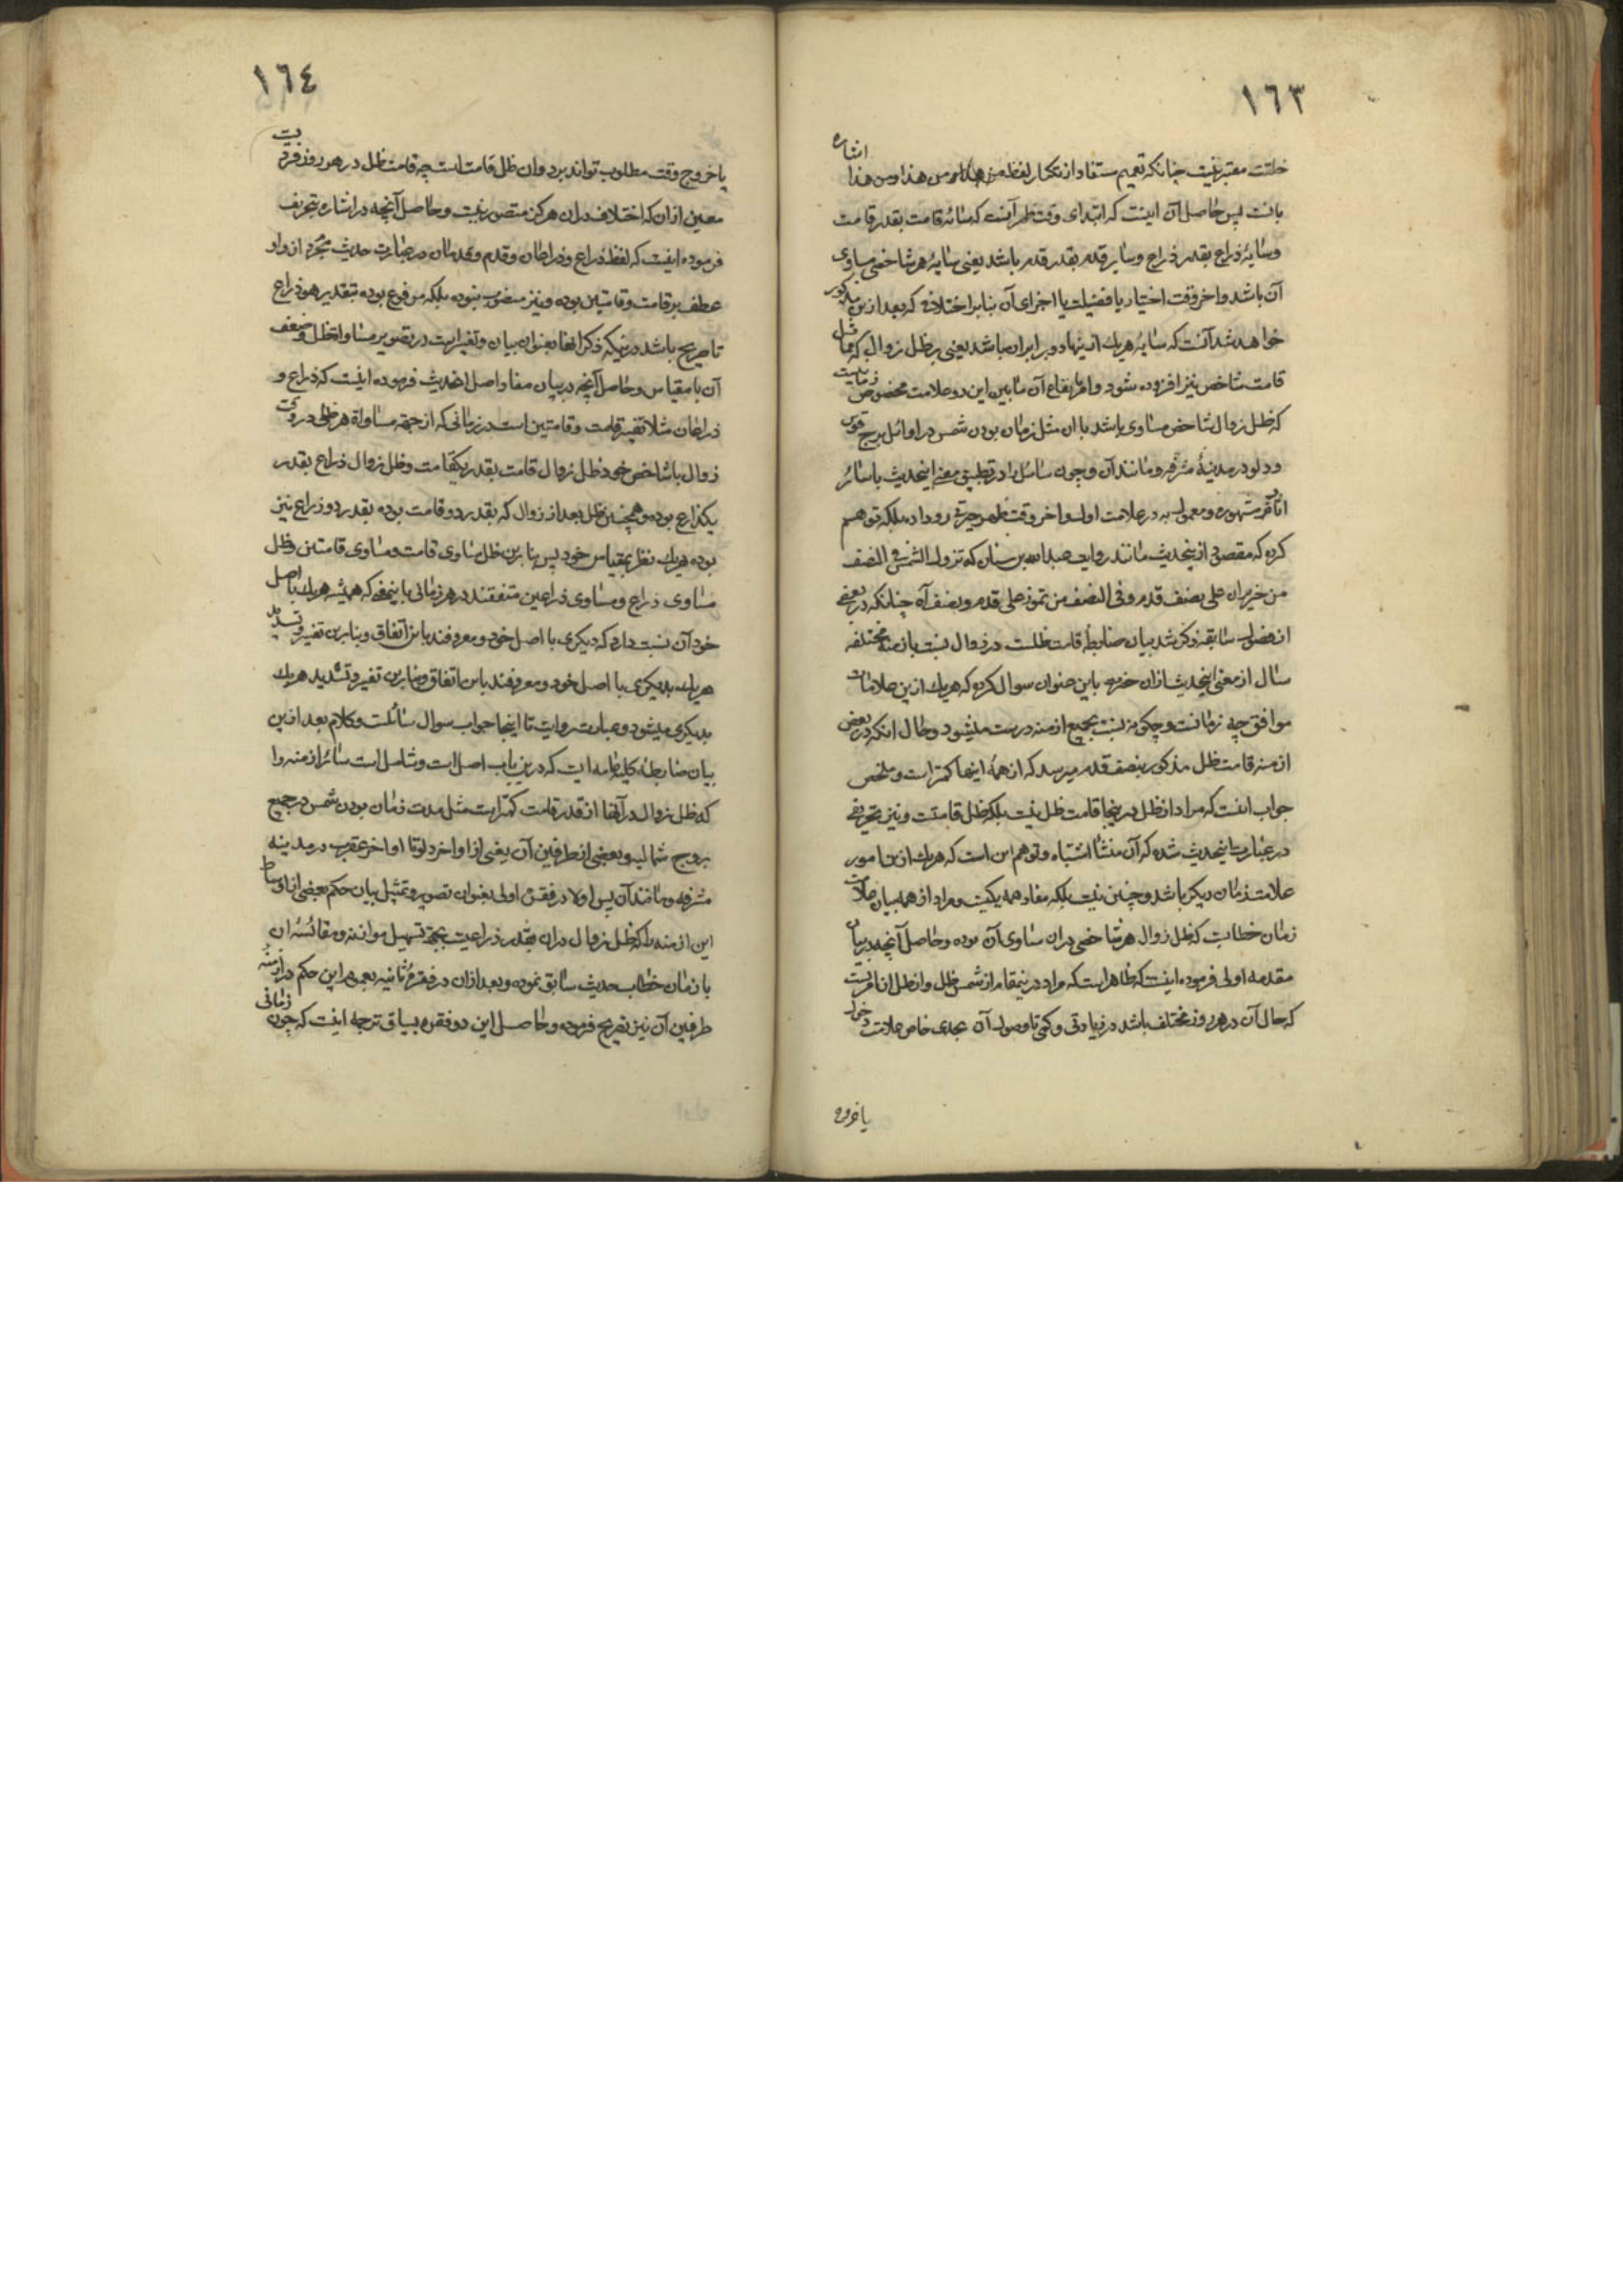 ١٦٣
اشاره
خلتت معتبر نیست چنانکه تعمیم مستفاد از تکرار لفظ من هذا ومن هذا
بانست پس حاصل آن اینست که ابتدای وقت ظهر آنست که سایه قامت بقدر قامت
وسایهٔ ذراع بقدر ذراع وسایر قدم بقدر قدم باشد یعنی سایهٔ هر شاخصی مساوی
آن باشد واخر وقت اختیار یا فضیلت یا اجزای آن بنابر اختلافی که بعد ازین مذکور
خواهد شد آنست که سایهٔ هریك ازینها دو برابر آن باشد یعنی بر ظل زوال که مماثل
قامت شاخص نیز افزوده شود وامر ایقاع آن مابین این دو علامت مخصوص زمانیست
که ظل زوال شاخص مساوی باشد با آن مثل زمان بودن شمس در اوائل برج قوس
ودلو در مدینهٔ مشرفه ومانند آن وچون سائل را در تطبیق معنی اینحدیث با سائر
مشهوره ومعموله در علامت اول واخر وقت ظهر حیرتی رو داده بلکه توهم
کرده که مقصود ازینحدیث مانند روایت عبدالله بن سنان که تزول الشمس فی النصف
من حزیران علی نصف قدم وفی النصف من تموز علی قدم ونصف آه چنانکه در بعضی
از فصول سابقه ذکر شد بیان ضابطهٔ قامت ظلست در زوال نسبت بازمنهٔ مختلفه
سئال از معنی اینحدیث ازان حضرت باین عنوان سوال کرده که هریك ازین علامات
موافق چه زمانست وچگونه نسبت بجمیع ازمنه درست میشود وحال آنکه در بعضی
ازمنه قامت ظل مذکور بنصف قدم میرسد که از همهٔ اینها کمتر است وملخص
جواب اینست که مراد از ظل در اینجا قامت ظل نیست بلکه ظل قامتست ونیز تحریفی
در عبارت اینحدیث شده که آن منشأ اشتباه وتوهم این است که هریك ازین امور
علامت زمان دیگر باشد وچنین نیست بلکه مفاد همه یکیست ومراد از همه بیان علامت
زمان خطابست که ظل زوال هر شاخصی دران مساوی آن بوده وحاصل آنچه در بیان
مقدمه اولی فرموده اینست که ظاهر است که مراد درینمقام از شمس ظل واز ظل
که حال آن در هر روز مختلف باشد در زیادتی وکمی تا وصول آن بحدی خاص علامت دخول
یا خروج
١٦٤
یا خروج وقت مطلوب تواند بود وآن ظل قامت است چه قامت ظل در هر روز فردیست
معین ازان که اختلاف دران هرگز متصور نیست وحاصل آنچه در اشاره بتحریف
فرموده اینست که لفظ ذراع وذراعان وقدم وقدمان در عبارت حدیث مجرد از واو
عطف بر قامت وقامتین بوده ونیز منصوب نبوده بلکه مرفوع بوده بتقدیر هو ذراع
تا صریح باشد درینکه ذکر آنها بعنوان بیان وتفسیر است در تصویر مساوات ظل وضعف
آن با مقیاس وحاصل آنچه در بیان مفاد اصل الحدیث فرموده اینست که ذراع و
ذراعان مثلا تفسیر قامت وقامتین است در زمانی که از جهة مساواة هر ظلی در وقت
زوال با شاخص خود ظل زوال قامت بقدر یکقامت وظل زوال ذراع بقدر
یکذراع بوده وهمچنین ظل بعد از زوال که بقدر دو قامت بوده بقدر دو ذراع نیز
بوده هریك نظر بمقیاس خود پس بنا برین ظل مساوی قامت ومساوی قامتین وظل
مساوی ذراع ومساوی ذراعین متفقند در هر زمانی باینمعنی که همیشه هریك با اصل
خود آن نسبت دارد که دیگری با اصل خود ومعروفند باین اتفاق وبنابرین تفسیر وتسدید
هریك بدیگری با اصل خود ومعروفند باین اتفاق وبنابرین تفسیر وتشدید هریك
بدیگری میشود وعبارت روایت تا اینجا جواب سوال سائلست وکلام بعد ازین
بیان ضابطهٔ کلیه عامه ایست که درین باب اصل است وشامل است سائر ازمنه را
که ظل زوال در آنها از قدر قامت کمتر است مثل مدت زمان بودن شمس در جمیع
بروج شمالیه وبعضی از طرفین آن یعنی از اواخر دلو تا اواخر عقرب در مدینه
مشرفه ومانند آن پس اولا در فقرهٔ اولی بعنوان تصویر وتمثیل بیان حکم بعضی از اوساط
این ازمنه را که ظل زوال دران بقدر ذراعیست بجهة تسهیل موازنه ومقائسهٔ آن
با زمان خطاب حدیث سابق نموده وبعد ازان در فقرهٔ ثانیه بعموم این حکم در ازمنهٔ
طرفین آن نیز تصریح فرموده وحاصل این دو فقره بسیاق ترجمه اینست که چون زمانی